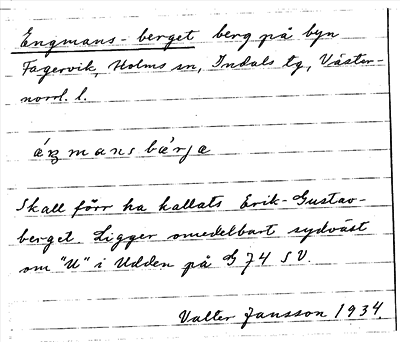 Engmans-berget berg på byn
Fagervik, Holms sn, Indals tg, Väster-
norrl. l.
áŋmansbæ̀rjɐ
Skall förr ha kallats Erik-Gustav-
berget. Ligger omedelbart sydväst
om "U" i Udden på G 74 SV.
Valter Jansson 1934.